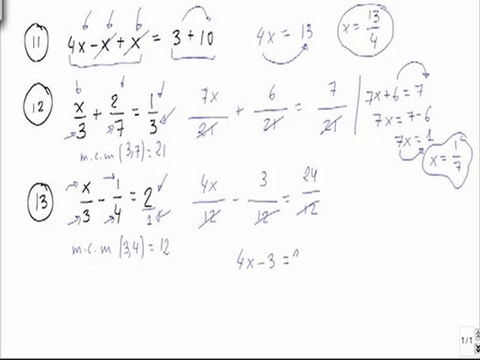 11 4x - x + x = 3 + 10 4x = 13 x = 13/4
12 x/3 + 2/7 = 1/3 7x/21 + 6/21 = 7/21 7x + 6 = 7
7x = 7 - 6
7x = 1
x = 1/7
m.c.m (3,7) = 21
13 x/3 - 1/4 = 2/1 4x/12 - 3/12 = 24/12
m.c.m (3,4) = 12
4x - 3 =
1/1